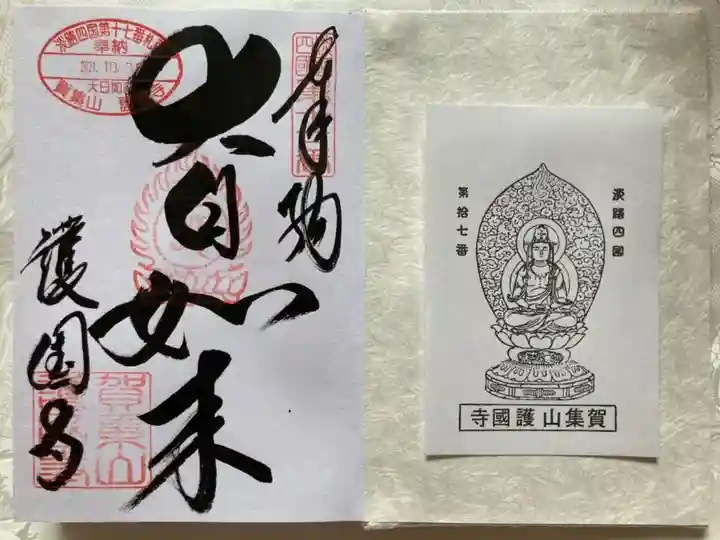 奉納
大日如来
護国寺
淡路四国第十七番札所
奉納
大日如来
賀集山 護国寺
賀集山
淡路四國
第拾七番
賀集山護國寺